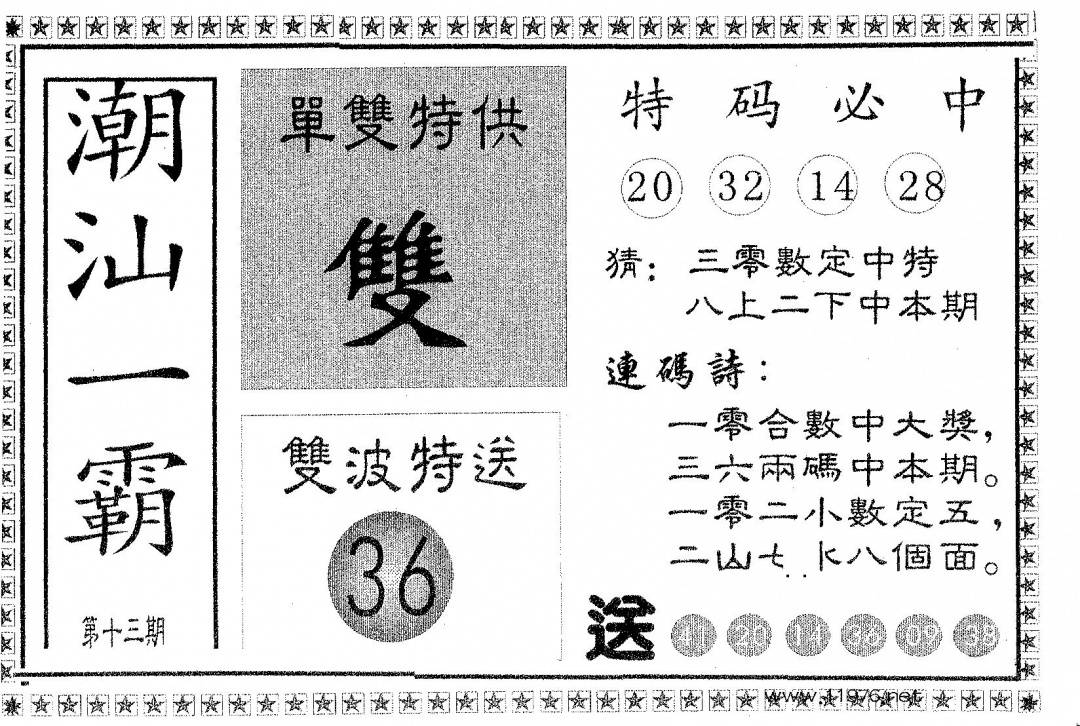 潮汕一霸
第十三期
單雙特供
雙
雙波特送
36
特码必中
20 32 14 28
猜：三零數定中特
八上二下中本期
連碼詩：
一零合數中大獎，
三六兩碼中本期。
一零二小數定五，
二山七 八個面。
送 41 20 14 36 09 38
www.11976.net